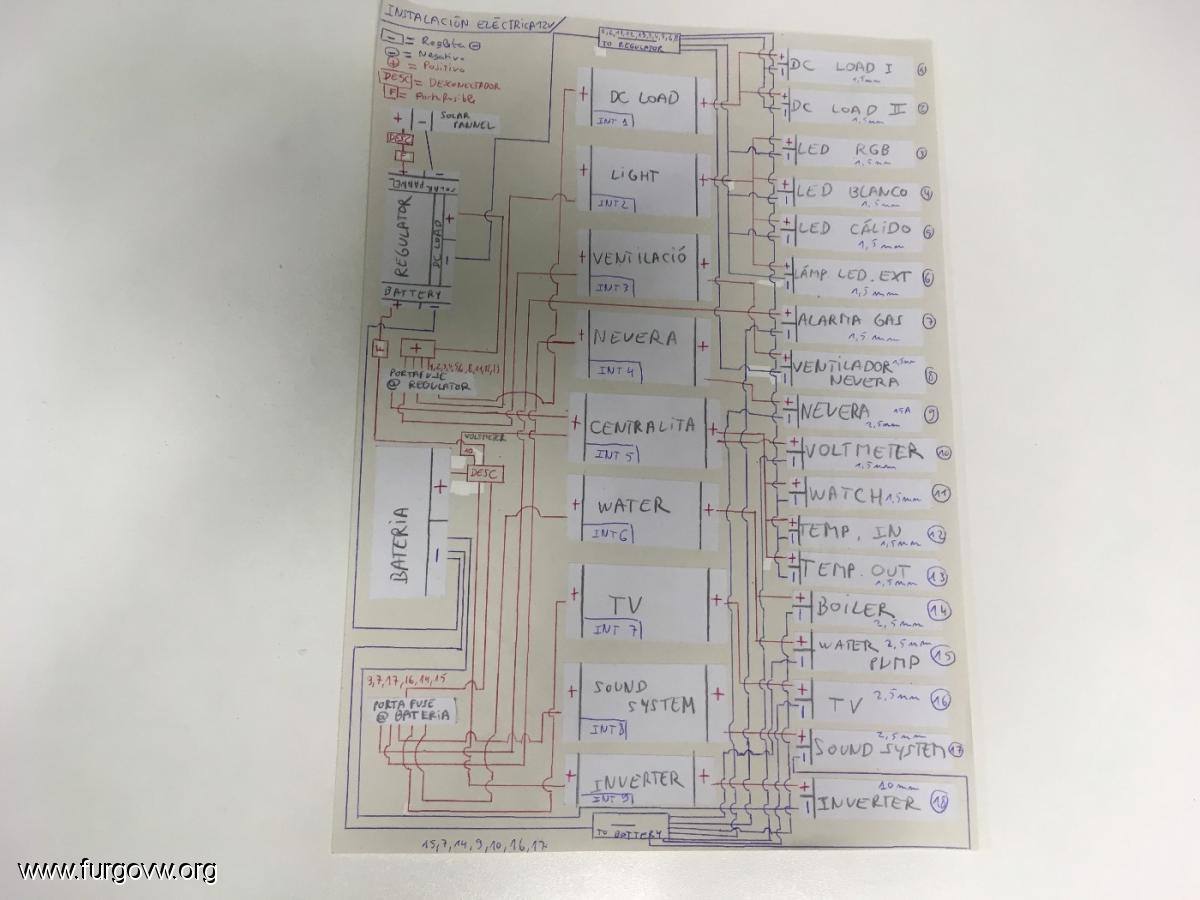 INSTALACIÓN ELÉCTRICA 12V
- = Regleta -
- = Negativo
+ = Positivo
DESC = DESCONECTADOR
F = Portafusible
+ - SOLAR PANNEL
DESC
F
SOLAR PANNEL
REGULATOR
DC LOAD
+
-
BATTERY
+ -
F
+
PORTAFUSE
@ REGULATOR
VOLTMETER
10
DESC
BATERIA
+
-
3,7,17,16,14,15
PORTA FUSE
@ BATERIA
TO REGULATOR
+ DC LOAD +
INT 1
+ LIGHT +
INT 2
+ VENTILACIÓ +
INT 3
+ NEVERA +
INT 4
+ CENTRALITA +
INT 5
+ WATER +
INT 6
+ TV +
INT 7
+ SOUND SYSTEM +
INT 8
+ INVERTER +
INT 9
-
TO BATTERY
15,7,14,9,10,16,17
DC LOAD I 1
1,5mm
DC LOAD II 2
1,5mm
LED RGB 3
1,5mm
LED BLANCO 4
1,5mm
LED CÁLIDO 5
1,5mm
LÁMP. LED. EXT 6
1,5mm
ALARMA GAS 7
1,5mm
VENTILADOR 1,5mm
NEVERA 8
NEVERA 15A 9
2,5mm
VOLTMETER 10
1,5mm
WATCH 1,5mm 11
TEMP. IN 12
1,5mm
TEMP. OUT 13
1,5mm
BOILER 14
2,5mm
WATER 2,5mm
PUMP 15
TV 2,5mm 16
2,5mm
SOUND SYSTEM 17
10mm
INVERTER 18
www.furgovw.org